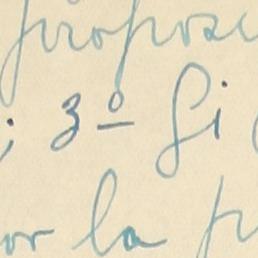 propos
; 3º Si
or la p